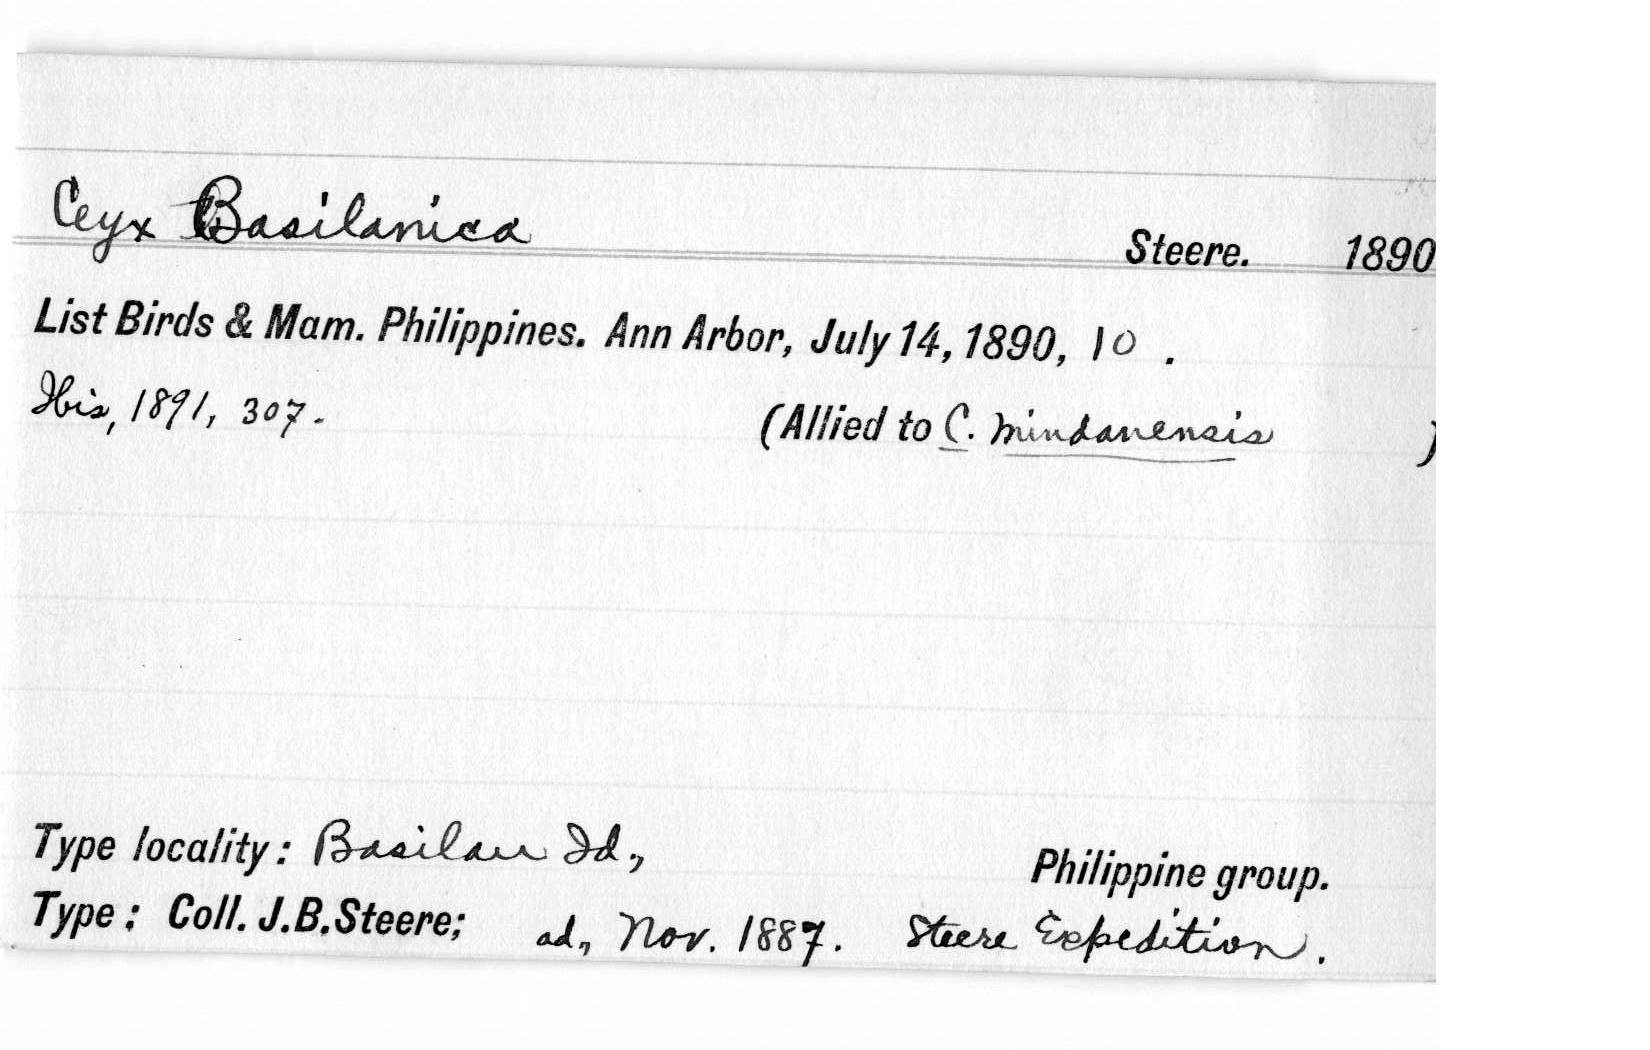 Ceyx Basilanica Steere. 1890
List Birds & Mam. Philippines. Ann Arbor, July 14, 1890, 10 .
Ibis, 1891, 307. (Allied to C. mindanensis )
Type locality: Basilan Id., Philippine group.
Type: Coll. J.B.Steere; ad., Nov. 1887. Steere Expedition.